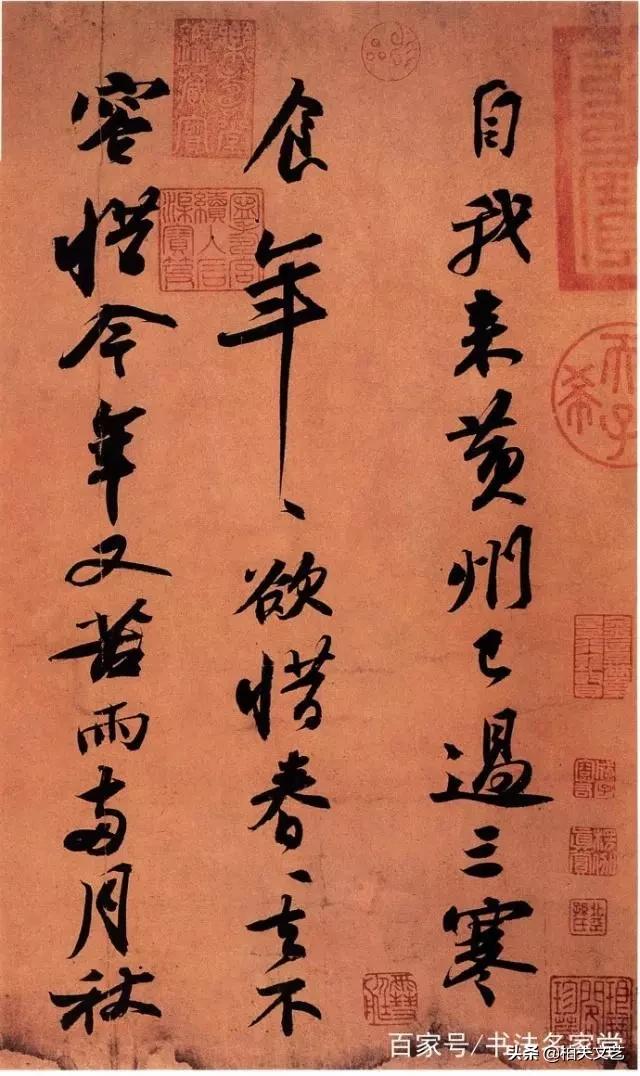 自我来黄州已過三寒
食年、欲惜春、去不
容惜今年又苦雨兩月秋
天子
希
百家号/书法名家堂
头条